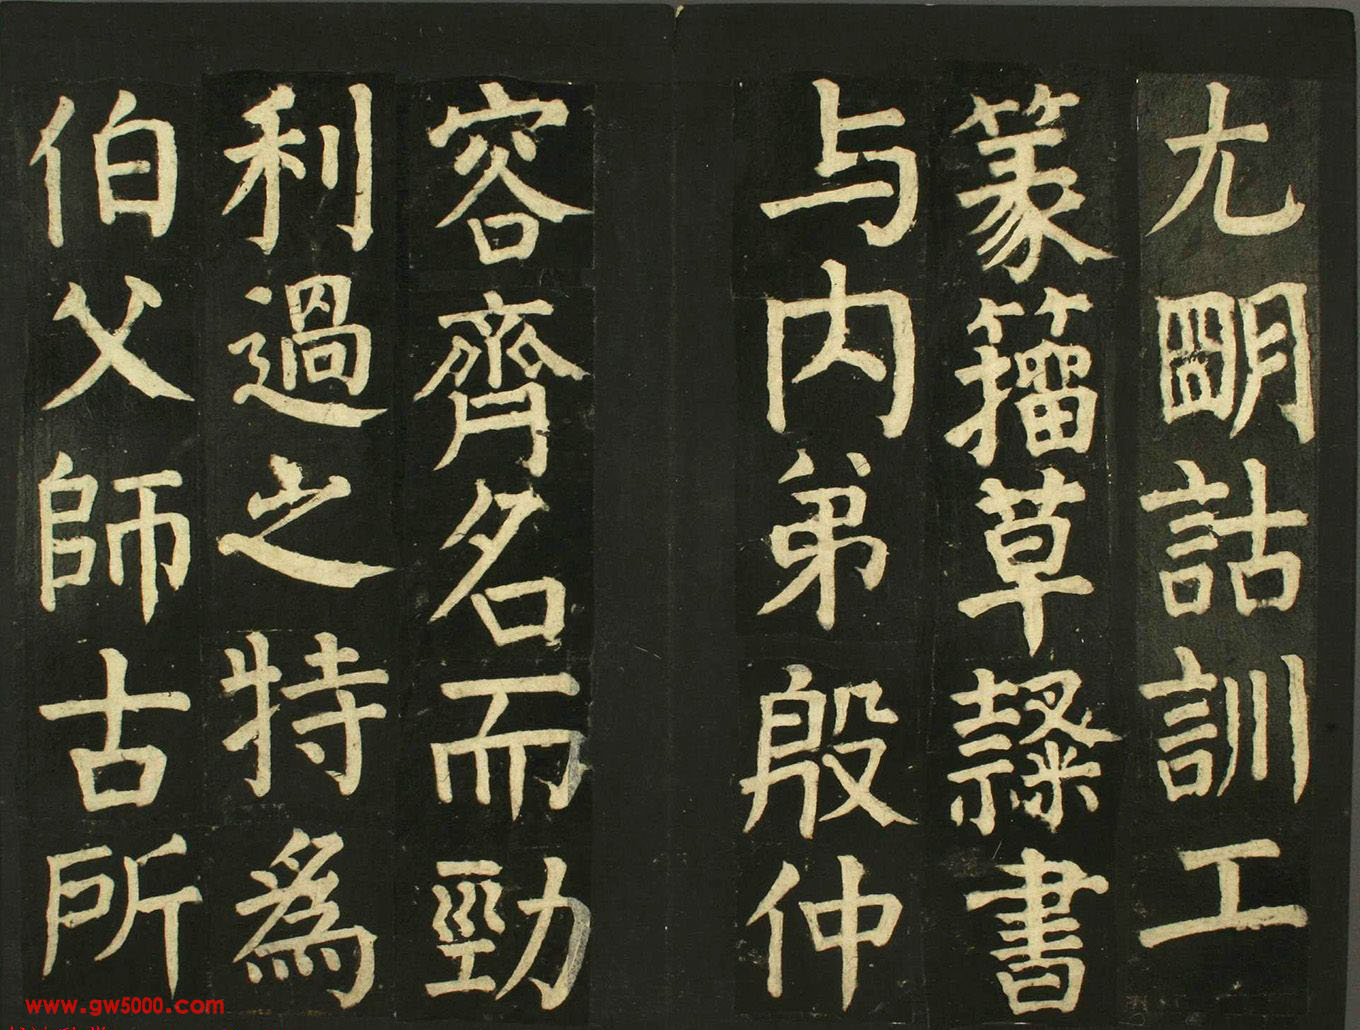 尢明詁訓工
篆籀草隸書
与内弟殷仲
容齊名而勁
利過之特為
伯父師古所
www.gw5000.com